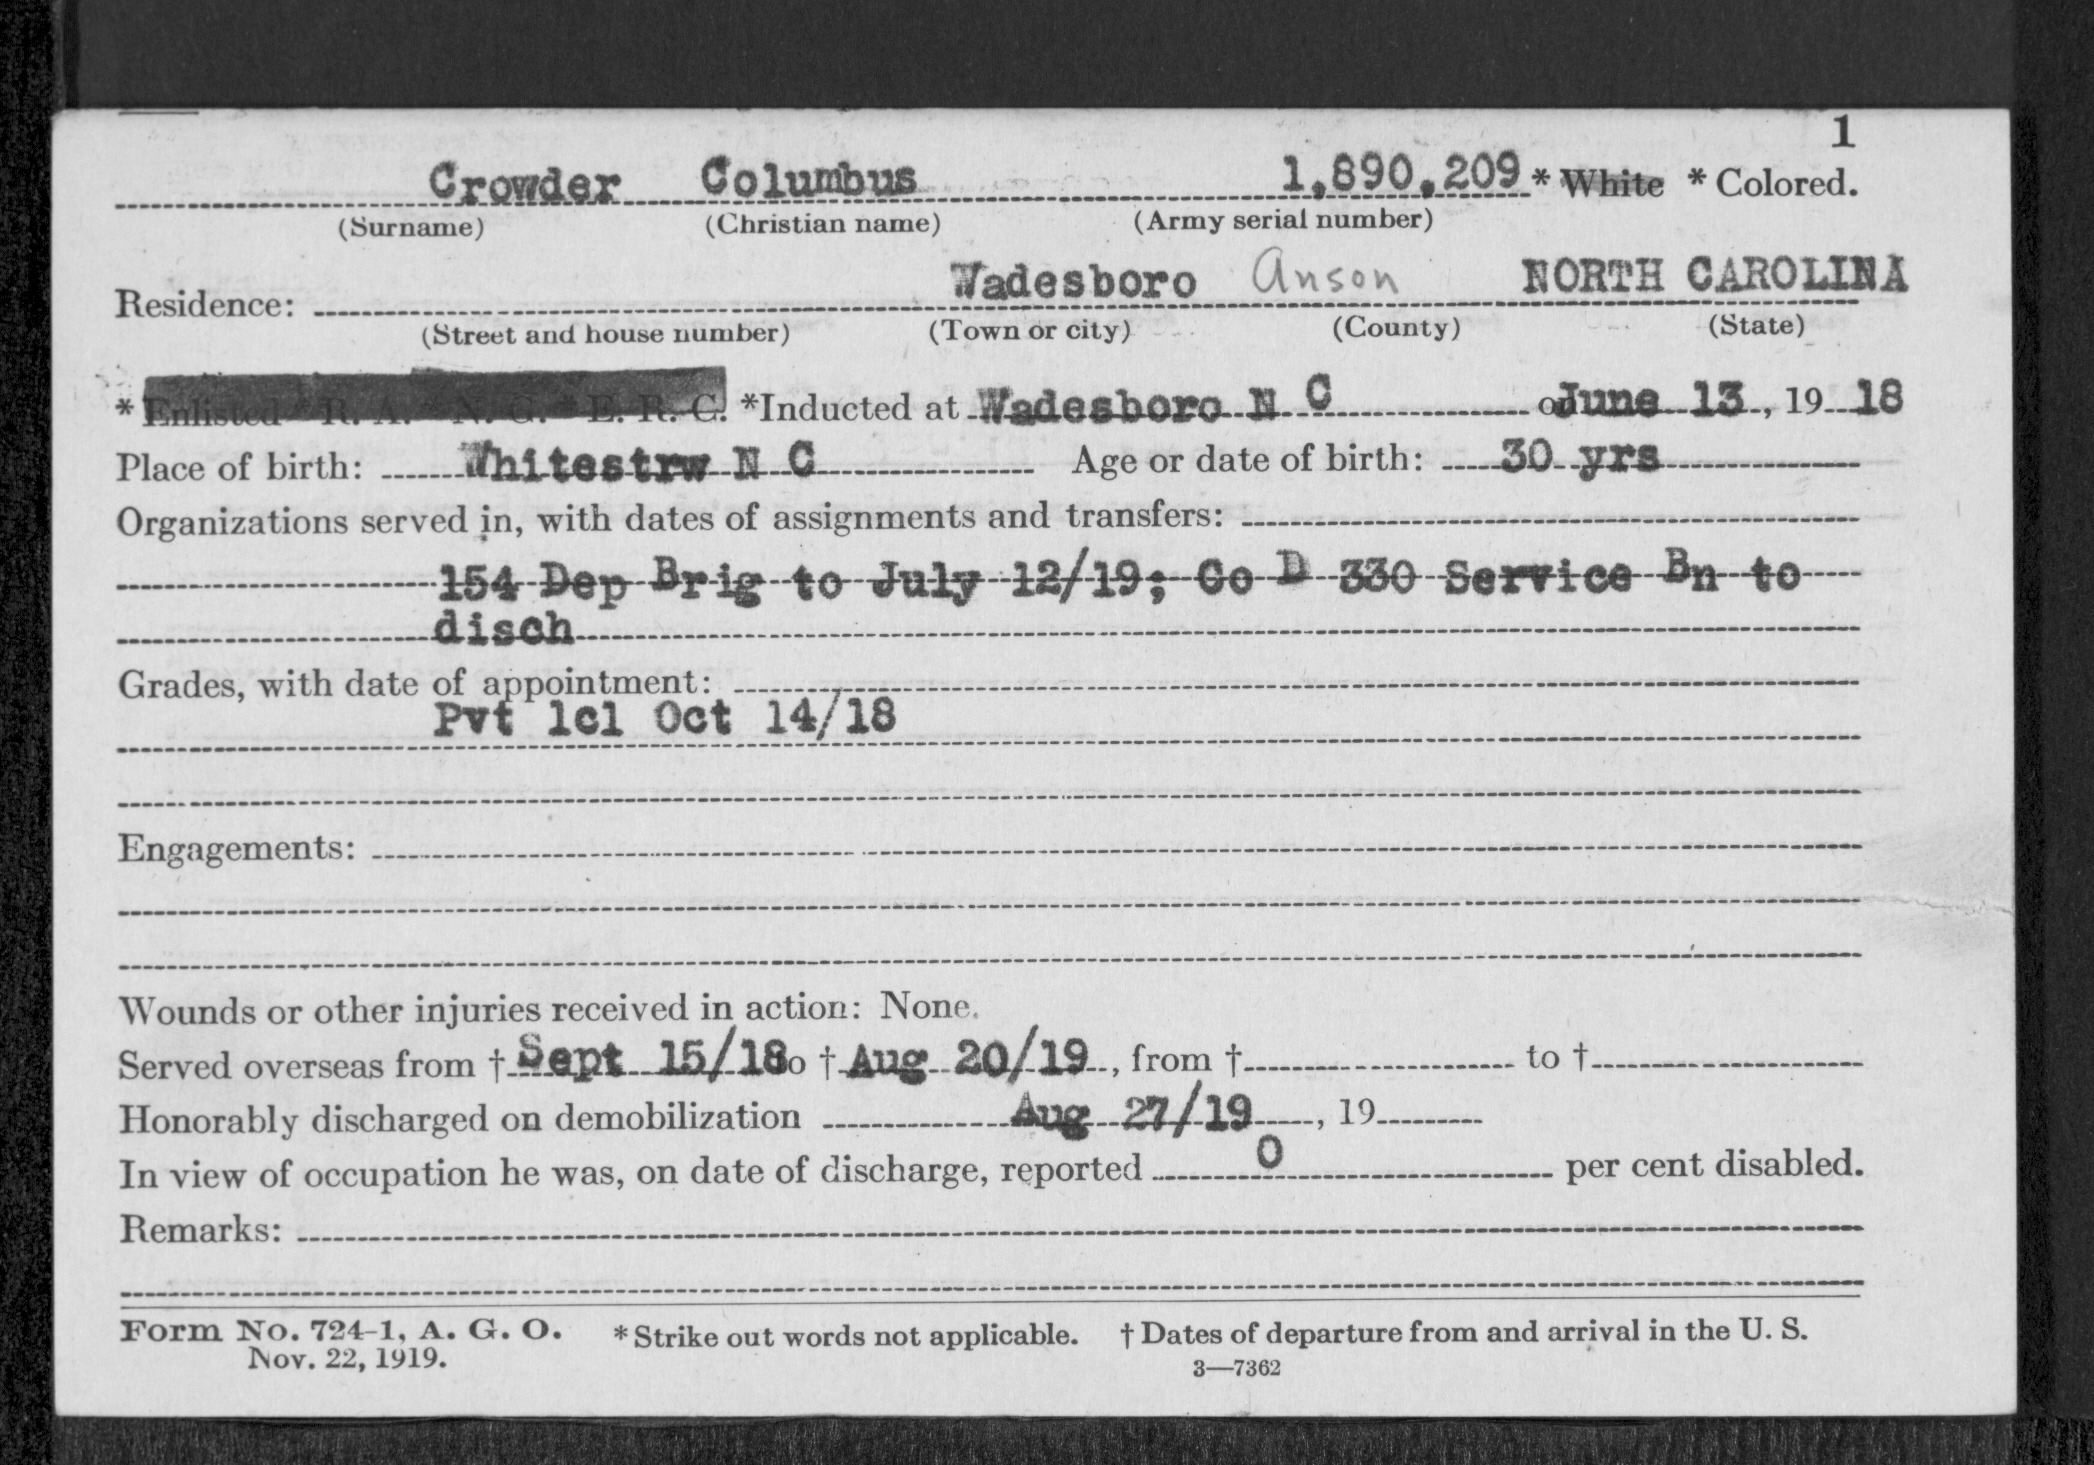 1
Crowder Columbus 1,890,209 * White * Colored.
(Surname) (Christian name) (Army serial number)
Wadesboro Anson NORTH CAROLINA
Residence:
(Street and house number) (Town or city) (County) (State)
* Enlisted R. A. N. G. E. R. C. *Inducted at Wadesboro N C on June 13, 19 18
Place of birth: Whitestrw N C Age or date of birth: 30 yrs
Organizations served in, with dates of assignments and transfers:
154 Dep Brig to July 12/19; Co D 330 Service Bn to
disch
Grades, with date of appointment:
Pvt 1cl Oct 14/18
Engagements:
Wounds or other injuries received in action: None.
Served overseas from † Sept 15/18 to † Aug 20/19, from † to †
Honorably discharged on demobilization Aug 27/19, 19
In view of occupation he was, on date of discharge, reported 0 per cent disabled.
Remarks:
Form No. 724-1, A. G. O. * Strike out words not applicable. † Dates of departure from and arrival in the U. S.
Nov. 22, 1919. 3—7362